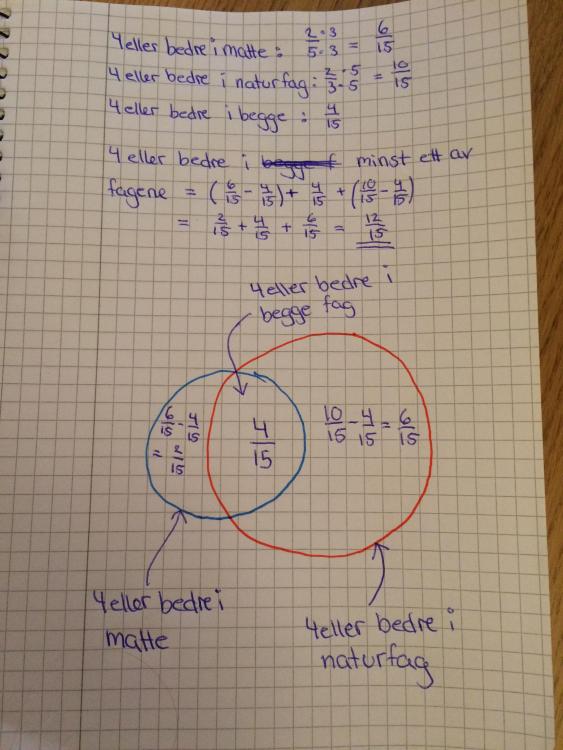 4 eller bedre i matte : 2·3/5·3 = 6/15
4 eller bedre i naturfag : 2·5/3·5 = 10/15
4 eller bedre i begge : 4/15
4 eller bedre i minst ett av
fagene = (6/15 - 4/15) + 4/15 + (10/15 - 4/15)
= 2/15 + 4/15 + 6/15 = 12/15
4 eller bedre i
begge fag
6/15 - 4/15
= 2/15
4/15
10/15 - 4/15 = 6/15
4 eller bedre i
matte
4 eller bedre i
naturfag